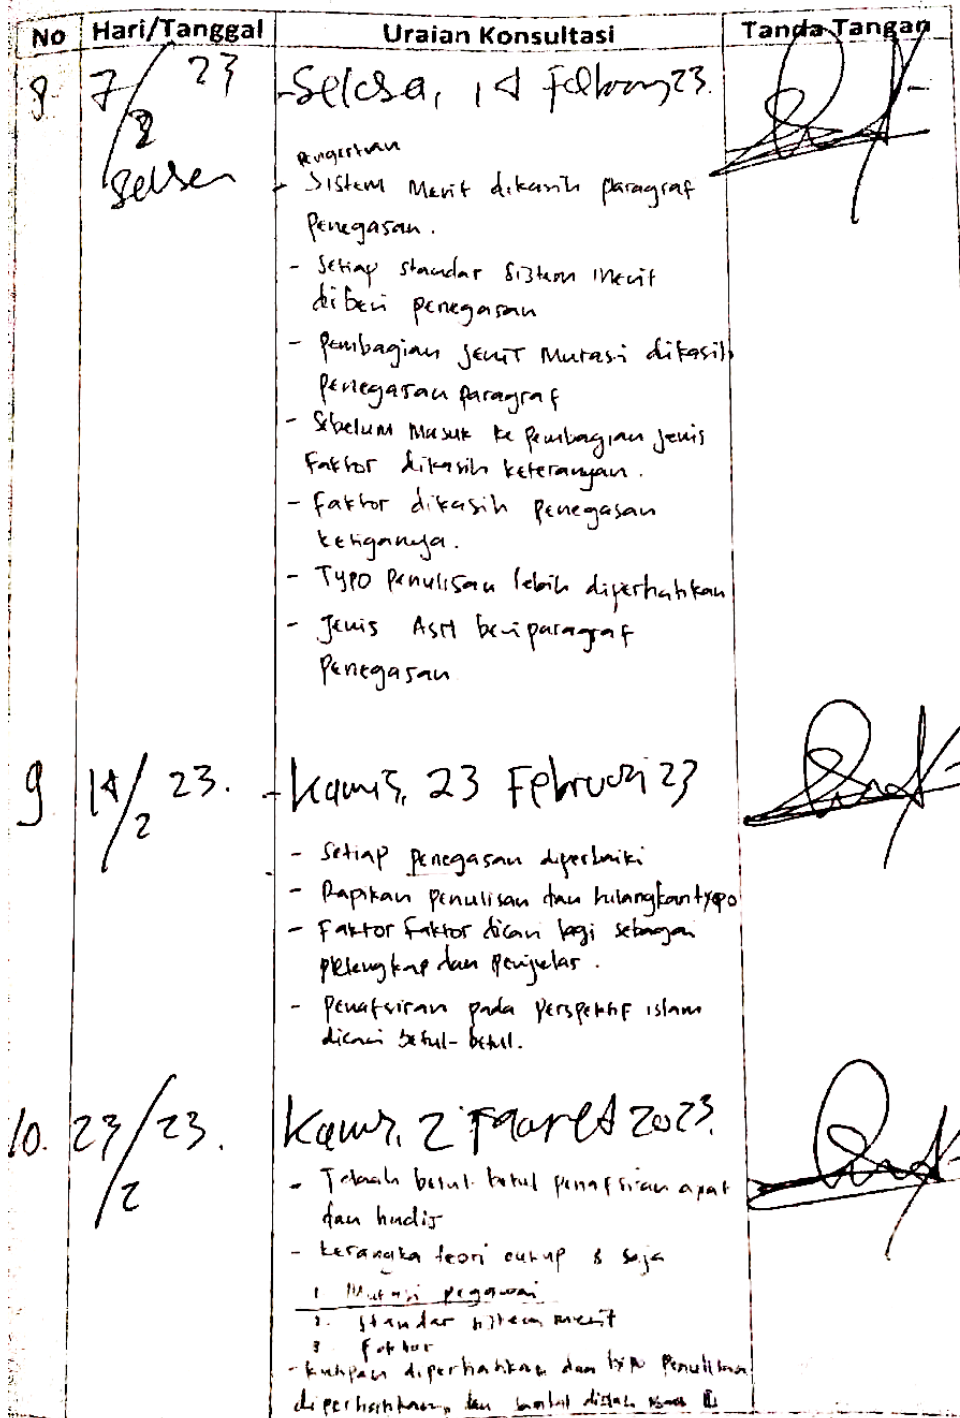 No Hari/Tanggal Uraian Konsultasi Tanda Tangan
8. 7/2 23 - Selasa, 14 Februari 23.
Pengertian
- Sistem Merit dikasih paragraf
penegasan.
- Setiap standar Sistem Merit
diberi penegasan
- Pembagian Jenis Mutasi dikasih
penegasan paragraf
- Sebelum Masuk ke Pembagian Jenis
Faktor dikasih keterangan.
- Faktor dikasih penegasan
ketiganya.
- Typo Penulisan lebih diperhatikan
- Jenis ASN beri paragraf
Penegasan
9 14/2 23. - Kamis, 23 Februari 23
- Setiap penegasan diperbaiki
- Rapikan penulisan dan hilangkan typo
- Faktor Faktor dicari lagi sebagai
pelengkap dan penjelas.
- Penafsiran pada perspektif islam
dicari betul-betul.
10. 23/2 23. Kamis, 2 Maret 2023.
- Telaah betul-betul penafsiran ayat
dan hadis
- kerangka teori cukup 3 saja
1. Mutasi pegawai
2. Standar sistem merit
3 Faktor
- kutipan diperhatikan dan typo Penulisan
diperhatikan,